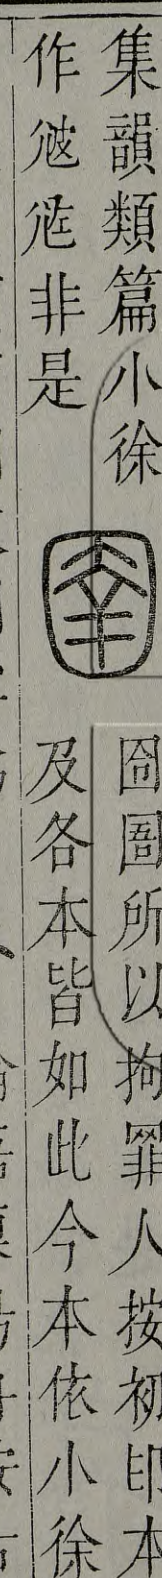 集韻類篇小徐
作非是
圉
囹圄所以拘罪人按初印本
及各本皆如此今本依小徐